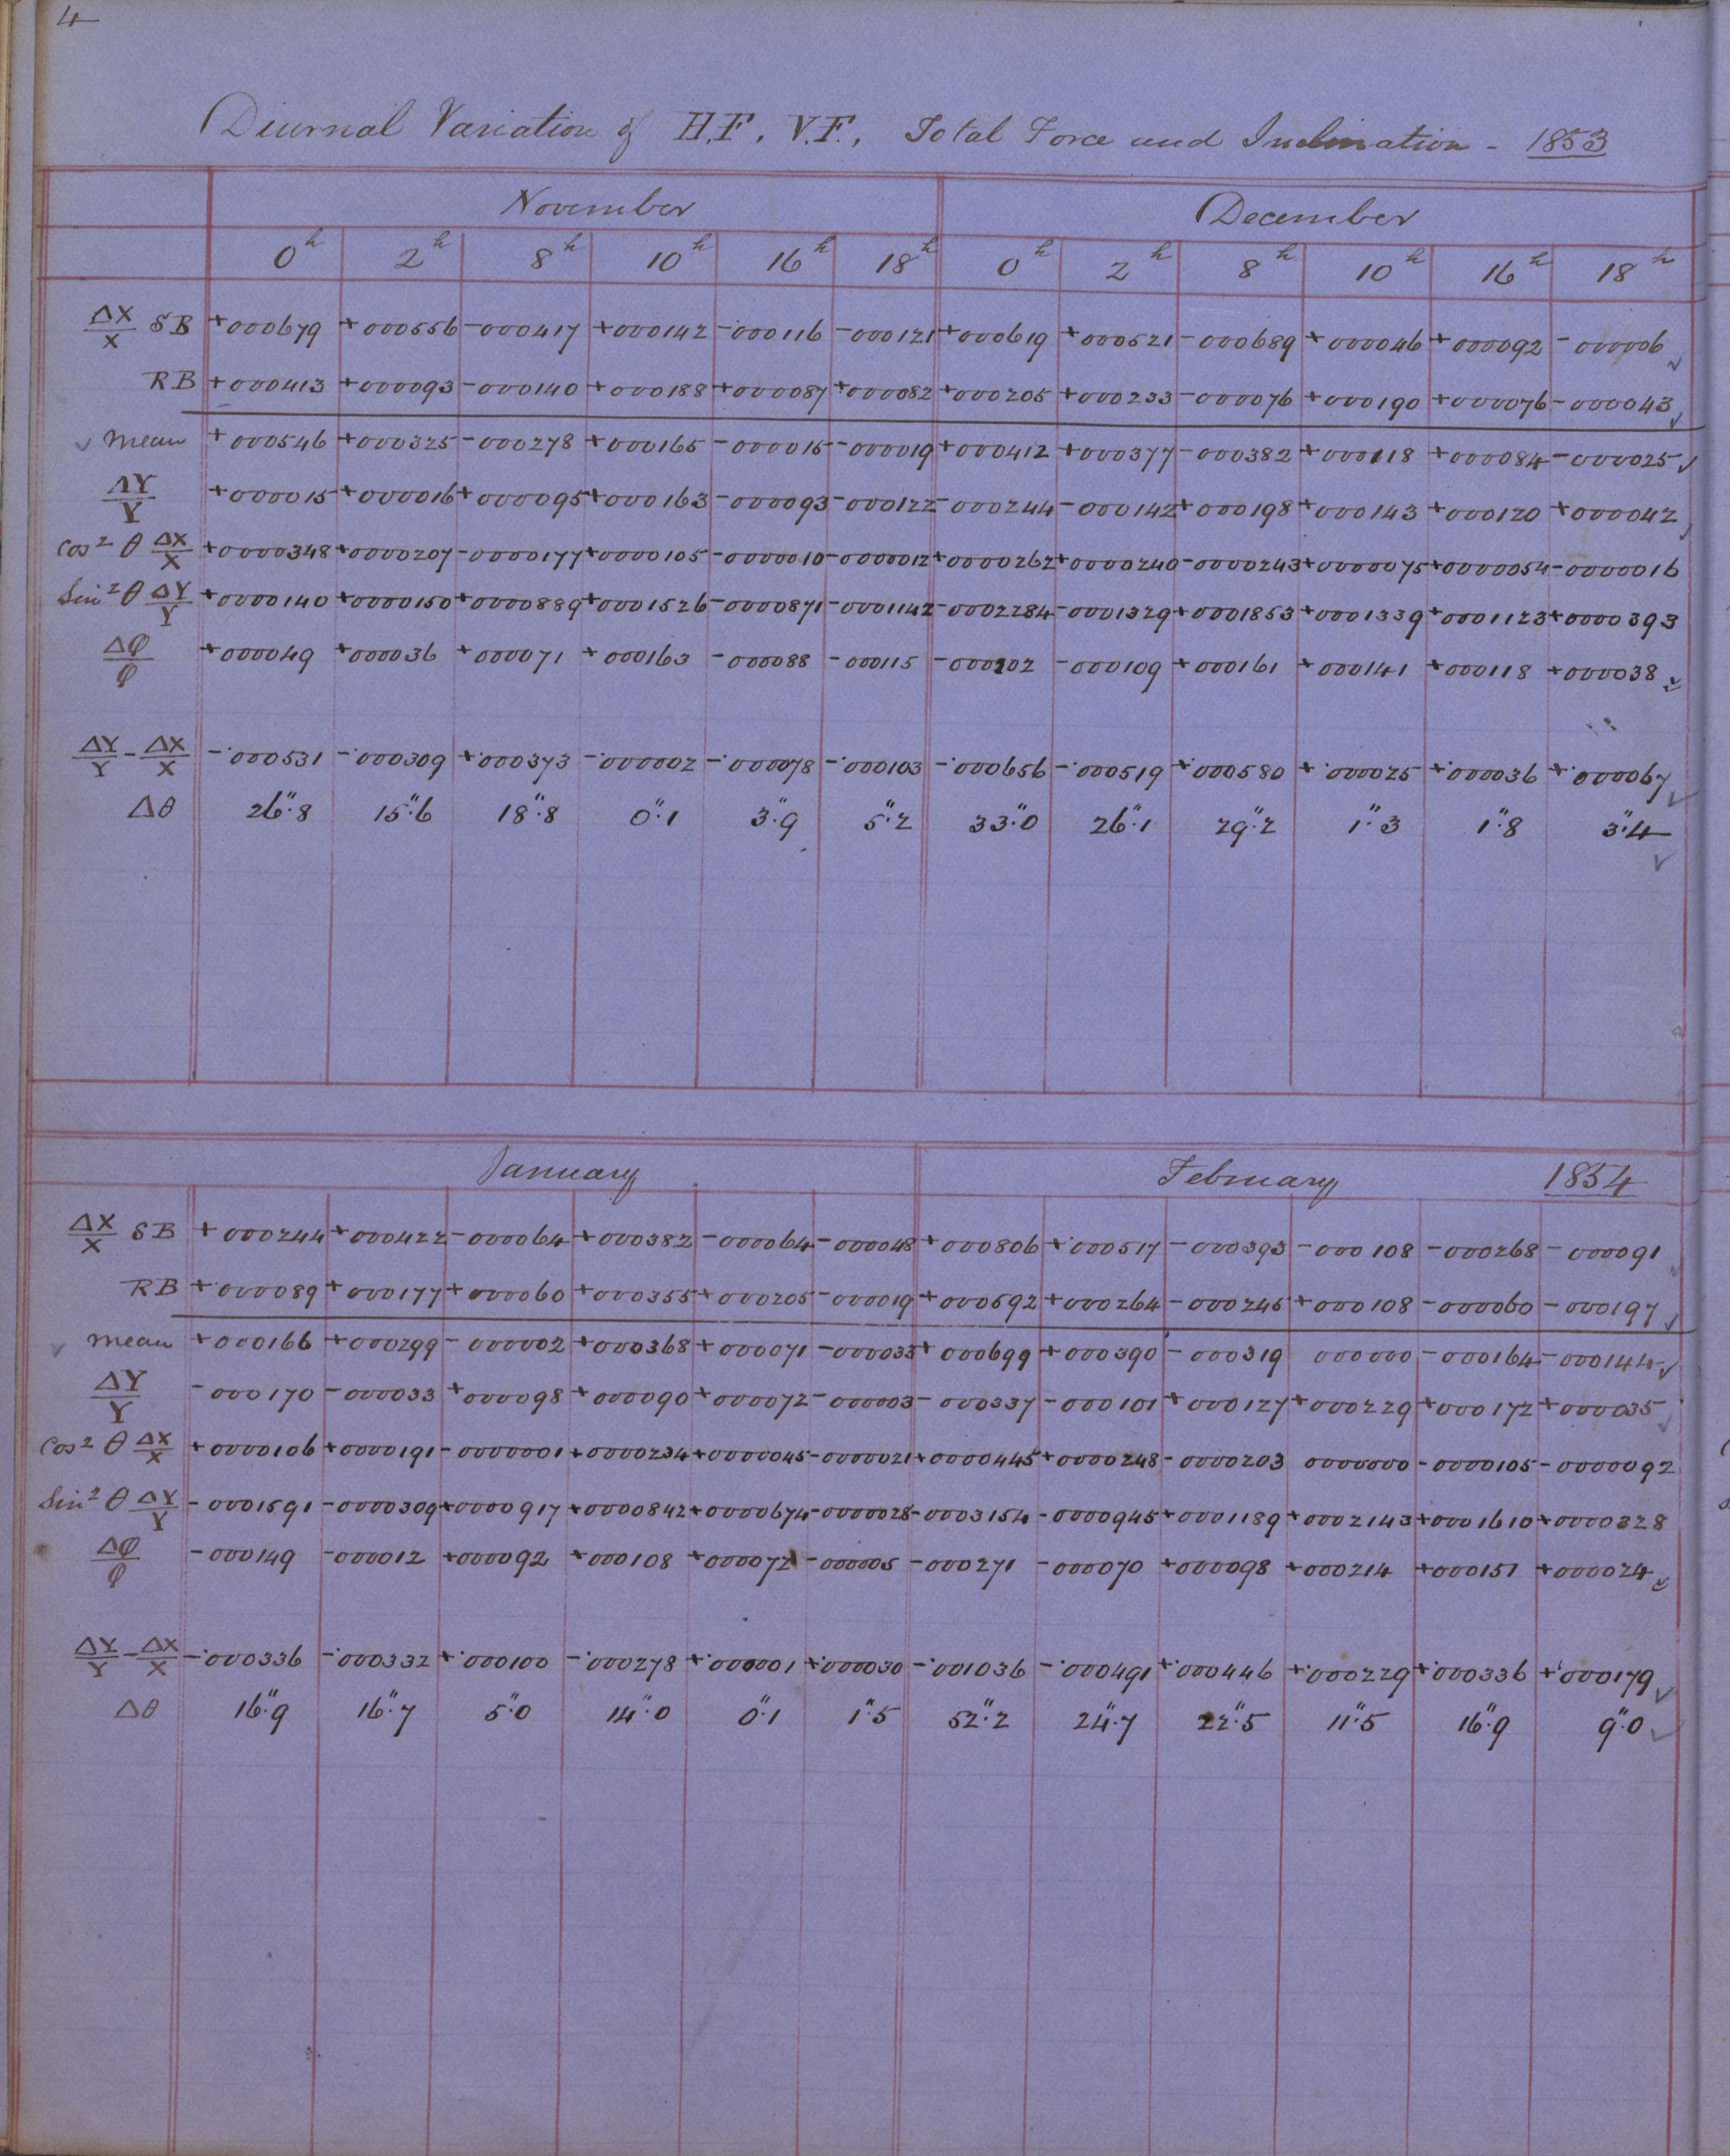 4
Diurnal Variation of H.F., V.F., Total Force and Inclination - 1853
November December
0h 2h 8h 10h 16h 18h 0h 2h 8h 10h 16h 18h
ΔX/X SB +000679 +000556 -000417 +000142 -000116 -000121 +000619 +000521 -000689 +000046 +000092 -000006
RB +000413 +000093 -000140 +000188 +000087 +000082 +000205 +000233 -000076 +000190 +000076 -000043
mean +000546 +000325 -000278 +000165 -000015 -000019 +000412 +000377 -000382 +000118 +000084 -000025
ΔY/Y +000015 +000016 +000095 +000163 -000093 -000122 -000244 -000142 +000198 +000143 +000120 +000042
Cos² θ ΔX/X +0000348 +0000207 -0000177 +0000105 -0000010 -0000012 +0000262 +0000240 -0000243 +0000075 +0000054 -0000016
Sin² θ ΔY/Y +0000140 +0000150 +0000889 +0001526 -0000871 -0001142 -0002284 -0001329 +0001853 +0001339 +0001123 +0000393
Δφ/φ +000049 +000036 +000071 +000163 -000088 -000115 -000202 -000109 +000161 +000141 +000118 +000038
ΔY/Y - ΔX/X -.000531 -.000309 +.000373 -.000002 -.000078 -.000103 -.000656 -.000519 +.000580 +.000025 +.000036 +.000067
Δθ 26".8 15".6 18".8 0".1 3".9 5".2 33".0 26".1 29".2 1".3 1".8 3".4
January February 1854
ΔX/X SB +000244 +000422 -000064 +000382 -000064 -000048 +000806 +000517 -000393 -000108 -000268 -000091
RB +000089 +000177 +000060 +000355 +000205 -000019 +000592 +000264 -000245 +000108 -000060 -000197
mean +000166 +000299 -000002 +000368 +000071 -000033 +000699 +000390 -000319 000000 -000164 -000144
ΔY/Y -000170 -000033 +000098 +000090 +000072 -000003 -000337 -000101 +000127 +000229 +000172 +000035
Cos² θ ΔX/X +0000106 +0000191 -0000001 +0000234 +0000045 -0000021 +0000445 +0000248 -0000203 0000000 -0000105 -0000092
Sin² θ ΔY/Y -0001591 -0000309 +0000917 +0000842 +0000674 -0000028 -0003154 -0000945 +0001189 +0002143 +0001610 +0000328
Δφ/φ -000149 -000012 +000092 +000108 +000072 -000005 -000271 -000070 +000098 +000214 +000151 +000024
ΔY/Y - ΔX/X -.000336 -.000332 +.000100 -.000278 +.000001 +.000030 -.001036 -.000491 +.000446 +.000229 +.000336 +.000179
Δθ 16".9 16".7 5".0 14".0 0".1 1".5 52".2 24".7 22".5 11".5 16".9 9".0